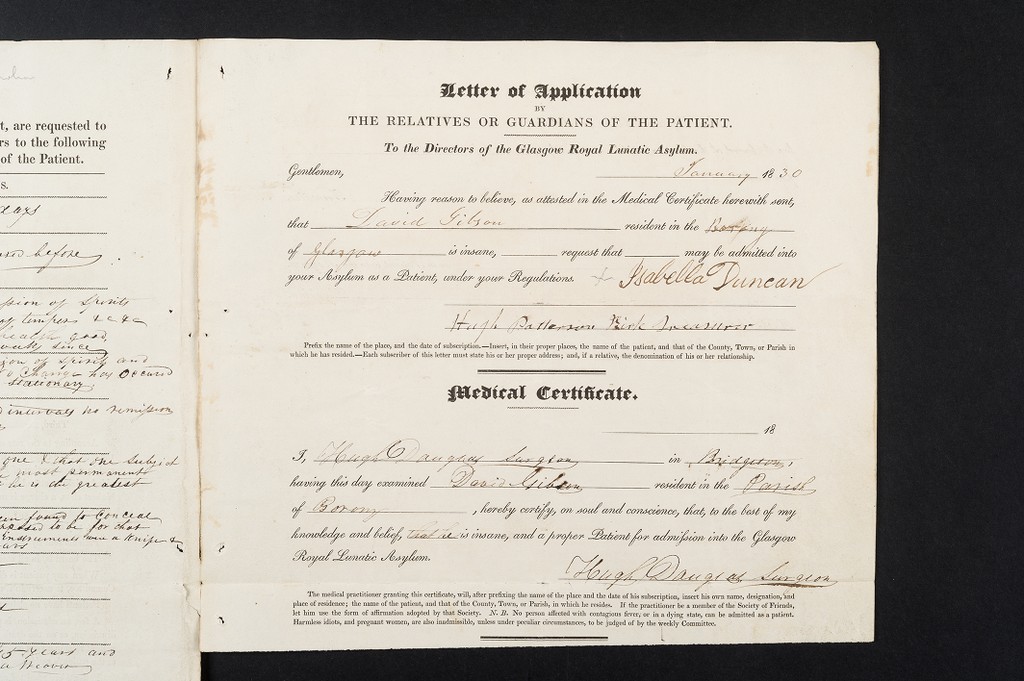 t, are requested to
rs to the following
of the Patient.
s.
days
before
sion of Spirits
tempers &c &c
health good,
weeks since
ion of Spirits and
change has occured
stationary
intervals no remission
one & that one Subject
most permanent
he is the greatest
en found to Conceal
posed to be for that
instruments were a Knife &
ars
45 years and
a Weaver
Letter of Application
BY
THE RELATIVES OR GUARDIANS OF THE PATIENT.
To the Directors of the Glasgow Royal Lunatic Asylum.
Gentlemen,
January 1830
Having reason to believe, as attested in the Medical Certificate herewith sent,
that David Gibson resident in the
of Glasgow is insane, request that may be admitted into
your Asylum as a Patient, under your Regulations. × Isabella Duncan
Hugh Patterson Kirk Treasurer
Prefix the name of the place, and the date of subscription.—Insert, in their proper places, the name of the patient, and that of the County, Town, or Parish in
which he has resided.—Each subscriber of this letter must state his or her proper address; and, if a relative, the denomination of his or her relationship.
Medical Certificate.
18
I, Hugh Douglas Surgeon in Bridgeton,
having this day examined David Gibson resident in the Parish
of Barony, hereby certify, on soul and conscience, that, to the best of my
knowledge and belief, that he is insane, and a proper Patient for admission into the Glasgow
Royal Lunatic Asylum.
Hugh Douglas Surgeon
The medical practitioner granting this certificate, will, after prefixing the name of the place and the date of his subscription, insert his own name, designation, and
place of residence; the name of the patient, and that of the County, Town, or Parish, in which he resides. If the practitioner be a member of the Society of Friends,
let him use the form of affirmation adopted by that Society. N. B. No person affected with contagious fever, or in a dying state, can be admitted as a patient.
Harmless idiots, and pregnant women, are also inadmissible, unless under peculiar circumstances, to be judged of by the weekly Committee.